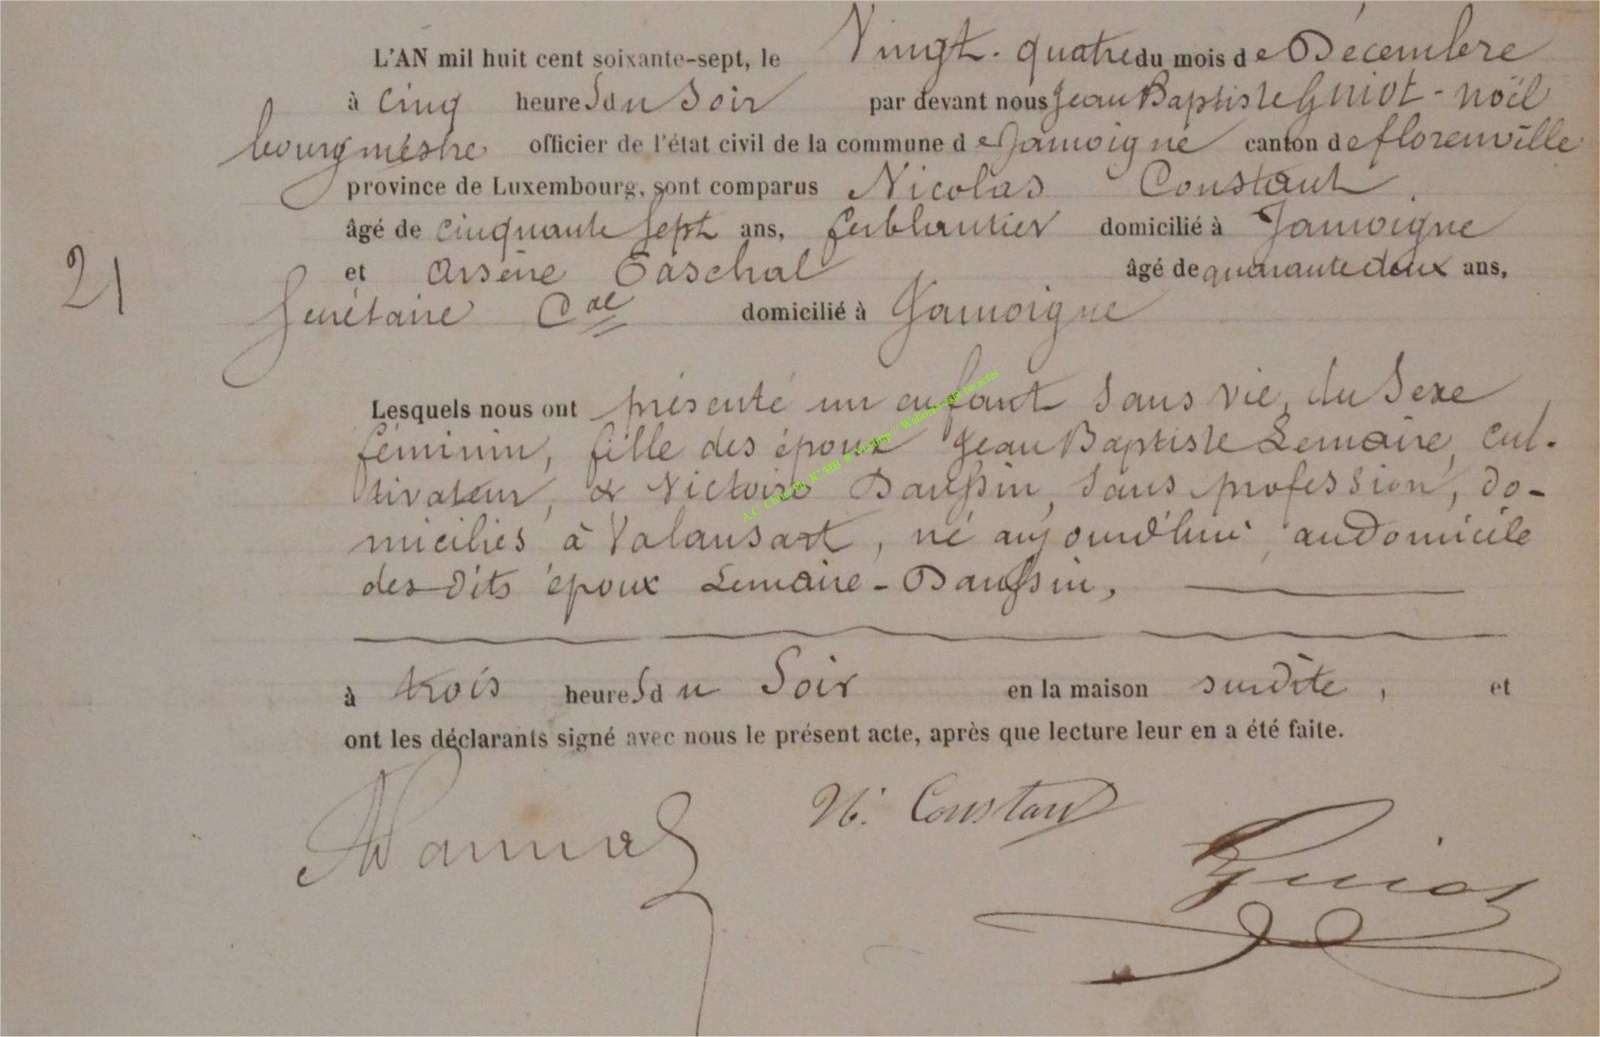 L'AN mil huit cent soixante-sept, le Vingt-quatre du mois de Décembre
à cinq heures du Soir par devant nous Jean Baptiste Guiot-noël
bourgmestre officier de l'état civil de la commune de Jamoigne canton de florenville
province de Luxembourg, sont comparus Nicolas Constant
âgé de cinquante sept ans, ferblantier domicilié à Jamoigne
21
et Arsène Paschal âgé de quarante deux ans,
Secrétaire Cal domicilié à Jamoigne
Lesquels nous ont présenté un enfant sans vie, du Sexe
féminin, fille des époux Jean Baptiste Lemaire, cul-
tivateur, et Victoire, sans profession, do-
miciliés à Valansart, né aujourd'hui au Domicile
des dits époux Lemaire-
à trois heures du Soir en la maison susdite, et
ont les déclarants signé avec nous le présent acte, après que lecture leur en a été faite.
N. Constant
Guiot